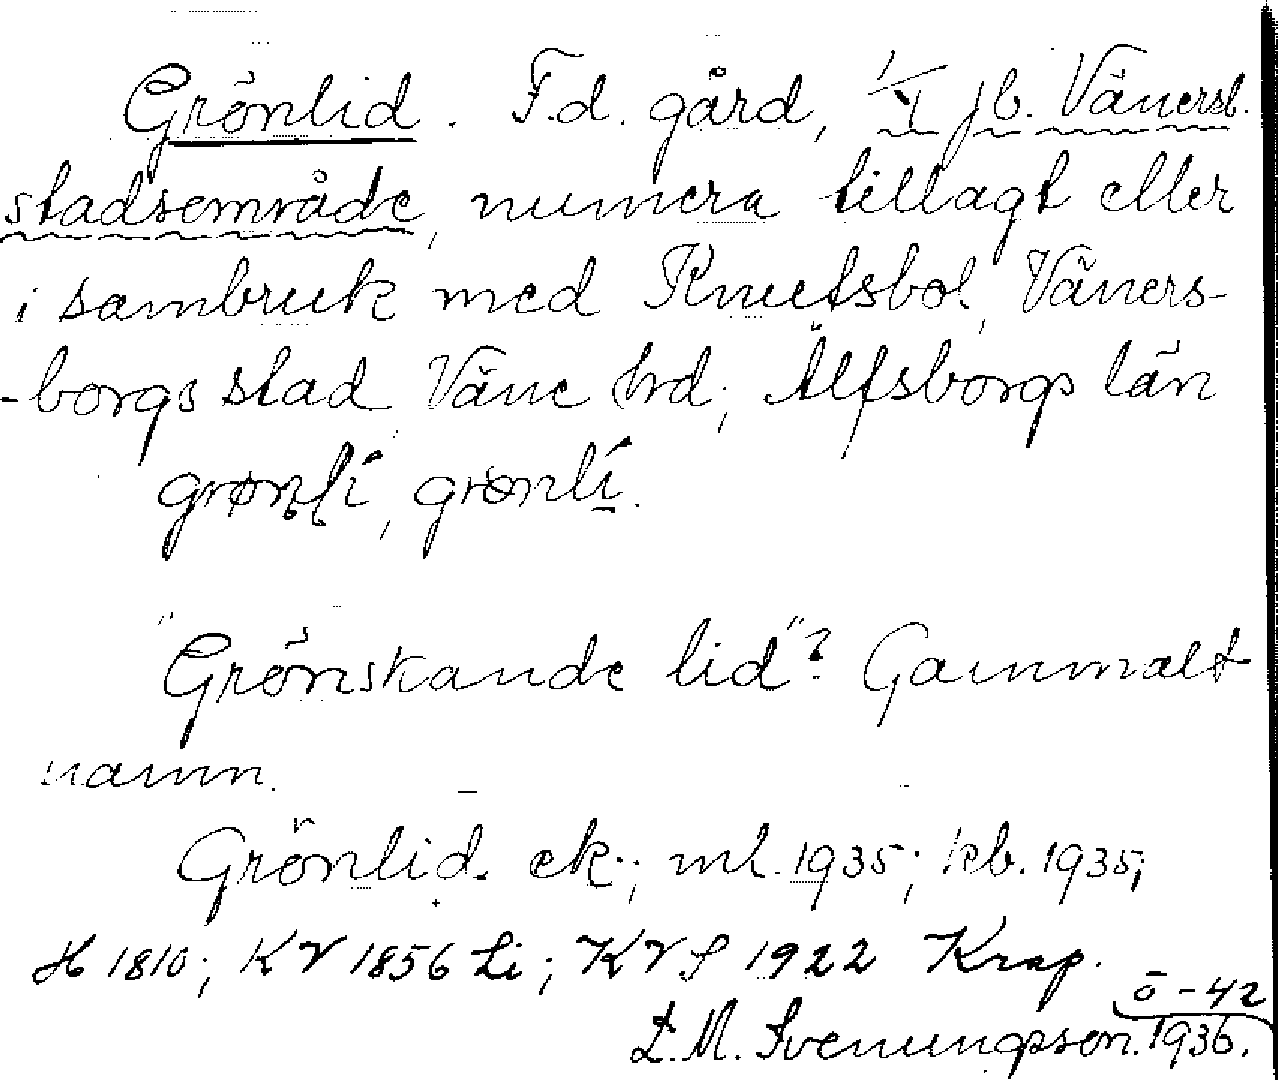 Grönlid. F.d. gård, 1/1 jb. Vänersb.
stadsområde, numera tillagt eller
i sambruk med Knutsbol, Väners-
-borgs stad Väne hrd; Älfsborgs län
grønlí, grönlí.
"Grönskande lid"? Gammalt
namn.
Grönlid. ek.; ml. 1935; kb. 1935;
H 1810; KV 1856 Li; KVS 1922 Krap.
ö-42
L.M. Svenungsson. 1936.